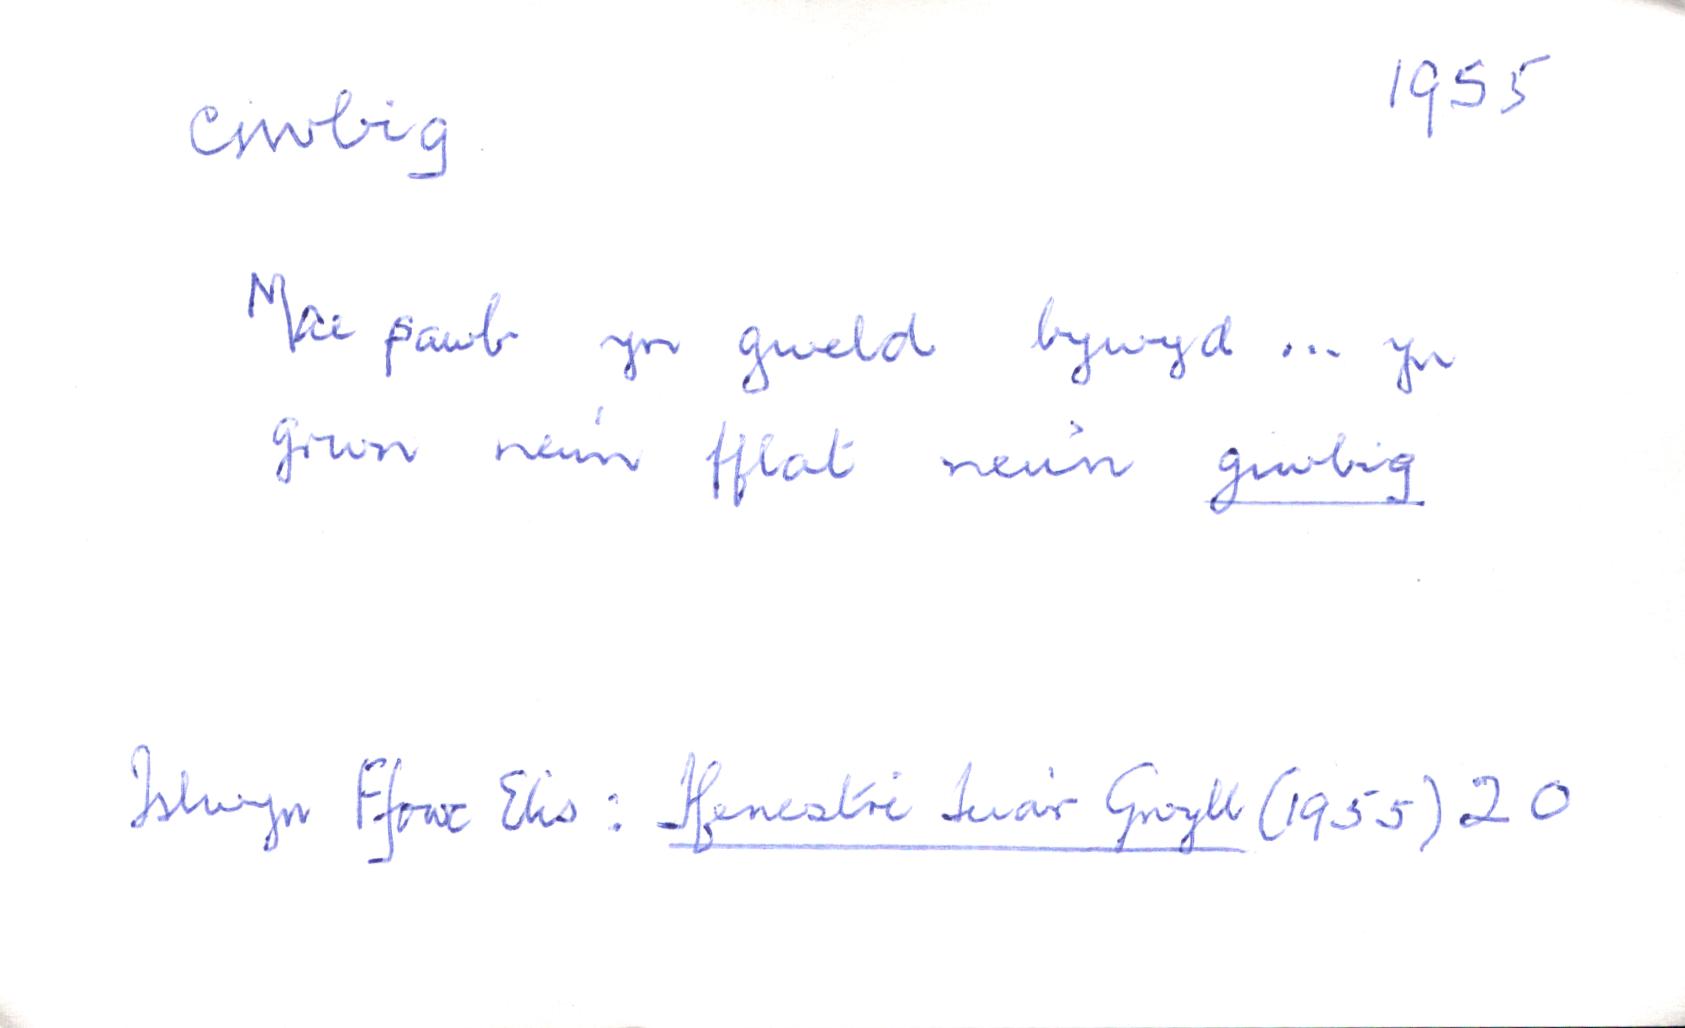 ciwbig 1955
Mae pawb yn gweld bywyd ... yn
grwn neu'n fflat neu'n giwbig
Islwyn Ffowc Elis: Ffenestri tua'r Gwyll (1955) 20